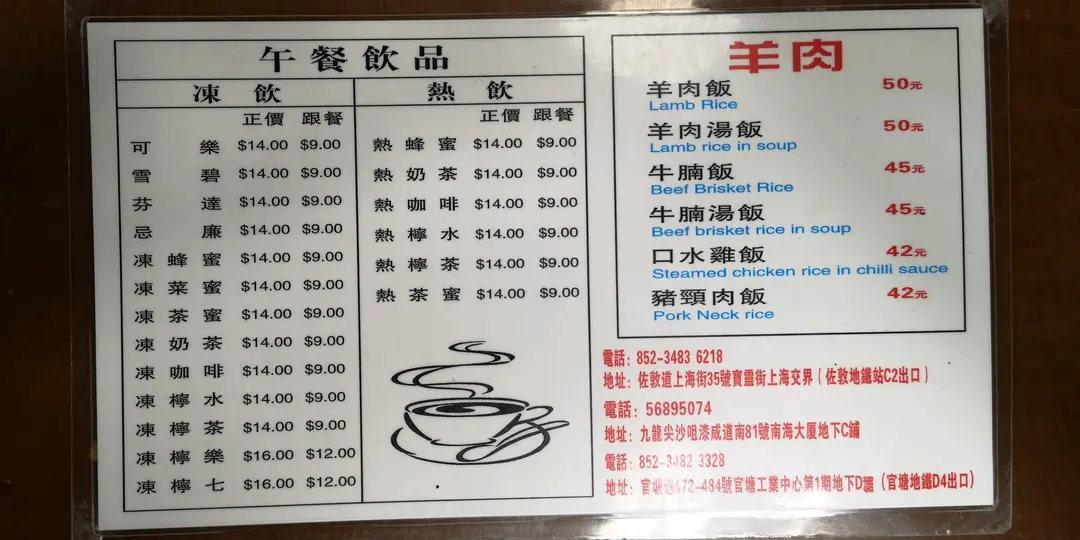 午餐飲品
凍飲
正價 跟餐
可樂 $14.00 $9.00
雪碧 $14.00 $9.00
芬達 $14.00 $9.00
忌廉 $14.00 $9.00
凍蜂蜜 $14.00 $9.00
凍菜蜜 $14.00 $9.00
凍茶蜜 $14.00 $9.00
凍奶茶 $14.00 $9.00
凍咖啡 $14.00 $9.00
凍檸水 $14.00 $9.00
凍檸茶 $14.00 $9.00
凍檸樂 $16.00 $12.00
凍檸七 $16.00 $12.00
熱飲
正價 跟餐
熱蜂蜜 $14.00 $9.00
熱奶茶 $14.00 $9.00
熱咖啡 $14.00 $9.00
熱檸水 $14.00 $9.00
熱檸茶 $14.00 $9.00
熱茶蜜 $14.00 $9.00
羊肉
羊肉飯 50元
Lamb Rice
羊肉湯飯 50元
Lamb rice in soup
牛腩飯 45元
Beef Brisket Rice
牛腩湯飯 45元
Beef brisket rice in soup
口水雞飯 42元
Steamed chicken rice in chilli sauce
豬頸肉飯 42元
Pork Neck rice
電話: 852-3483 6218
地址: 佐敦道上海街35號寶靈街上海交界（佐敦地鐵站C2出口）
電話: 56895074
地址: 九龍尖沙咀漆咸道南81號南海大厦地下C鋪
電話: 852-3482 3328
地址: 官塘道472-484號官塘工業中心第1期地下D (官塘地鐵D4出口)